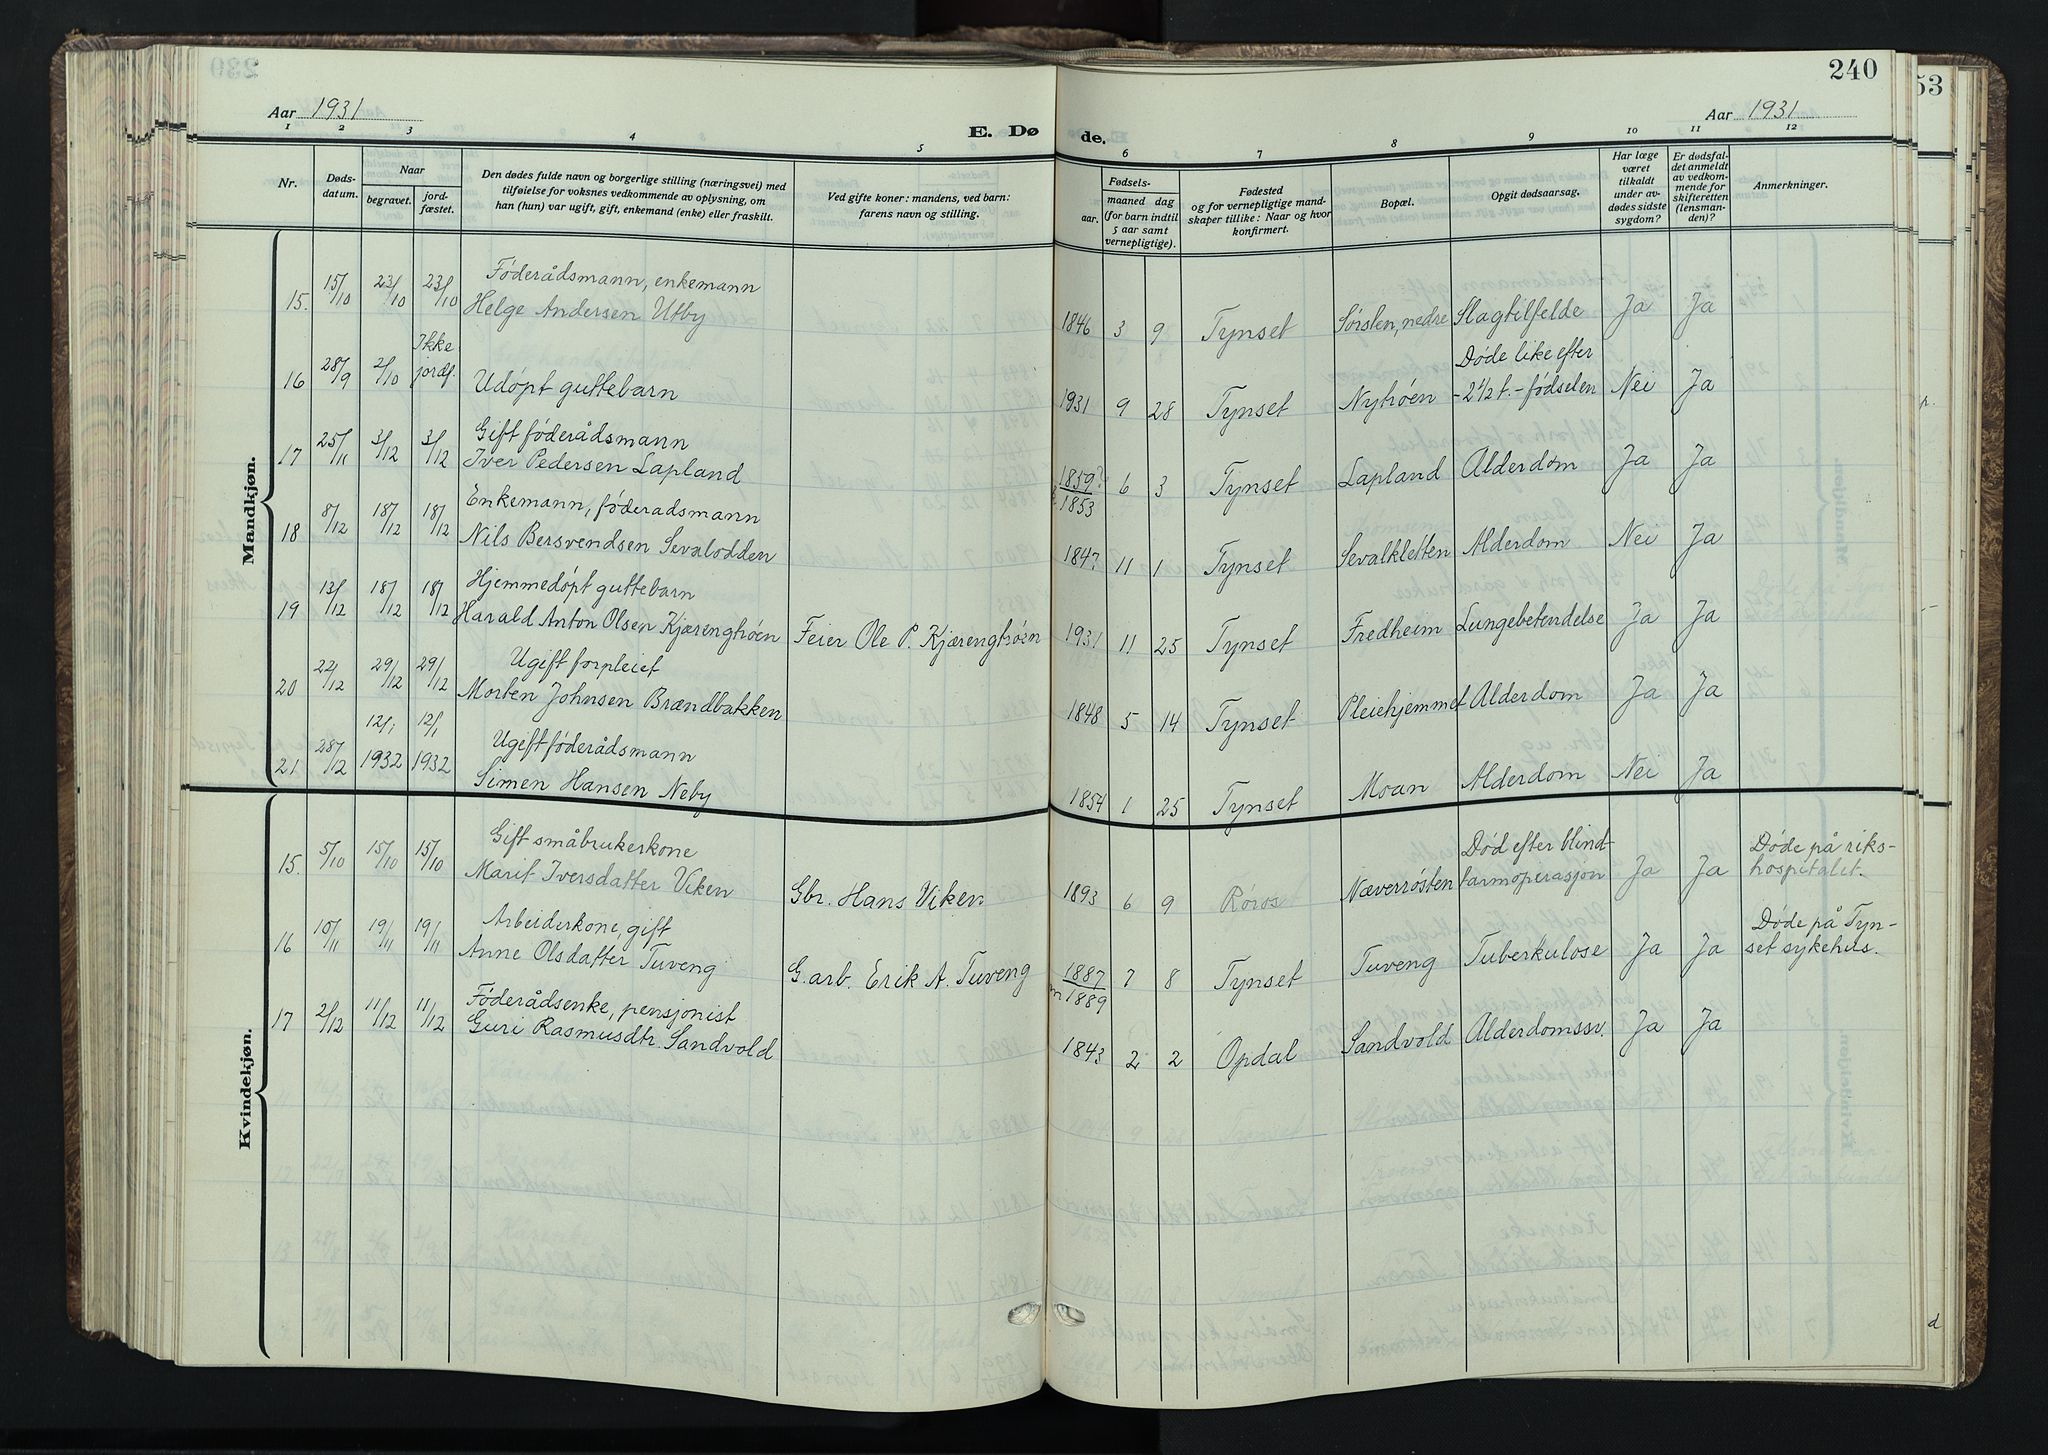 240
53
Aar 1931
E. Dø de.
Aar 1931
1 2 3 4 5 6 7 8 9 10 11 12
Nr.
Døds-
datum.
Naar
begravet.
jord-
fæstet.
Den dødes fulde navn og borgerlige stilling (næringsvei) med
tilføielse for voksnes vedkommende av oplysning, om
han (hun) var ugift, gift, enkemand (enke) eller fraskilt.
Ved gifte koner: mandens, ved barn:
farens navn og stilling.
Fødsels-
aar.
maaned dag
(for barn indtil
5 aar samt
vernepligtige).
Fødested
og for vernepligtige mand-
skaper tillike: Naar og hvor
konfirmert.
Bopæl.
Opgit dødsaarsag.
Har læge
været
tilkaldt
under av-
dødes sidste
sygdom?
Er dødsfal-
det anmeldt
av vedkom-
mende for
skifteretten
(lensman-
den)?
Anmerkninger.
Mandkjøn.
Føderådsmann, enkemann
15. 15/10 23/10 23/10 Helge Andersen Utby 1846 3 9 Tynset Sørsten, nedre Slagtilfelde Ja Ja
Ikke Døde like efter
16 28/9 2/10 jordf. Udøpt guttebarn 1931 9 28 Tynset Nytrøen - 2 1/2 t. - fødselen Nei Ja
Gift føderådsmann
17 25/11 3/12 3/12 Iver Pedersen Lapland 1859? 6 3 Tynset Lapland Alderdom Ja Ja
1853
Enkemann, føderadsmann
18 8/12 18/12 18/12 Nils Bersvendsen Sevalodden 1847 11 1 Tynset Sevalkletten Alderdom Nei Ja
Hjemmedøpt guttebarn
19 13/12 18/12 18/12 Harald Anton Olsen Kjærengtrøen Feier Ole P. Kjærengtrøen 1931 11 25 Tynset Fredheim Lungebetendelse Ja Ja
Ugift forpleiet
20 22/12 29/12 29/12 Morten Johnsen Brændbakken 1848 5 14 Tynset Pleiehjemmet Alderdom Ja Ja
12/1 12/1 Ugift føderådsmann
21 28/12 1932 1932 Simen Hansen Neby 1854 1 25 Tynset Moan Alderdom Nei Ja
Kvindekjøn.
Gift småbrukerkone Død efter blind- Døde på riks-
15. 5/10 15/10 15/10 Marit Iversdatter Viken Gbr. Hans Viken 1893 6 9 Røros Næverrøsten tarmoperasjon Ja Ja hospitalet.
Arbeiderkone, gift Døde på Tyn-
16 10/11 19/11 19/11 Anne Olsdatter Tuveng G. arb. Erik A. Tuveng 1887 7 8 Tynset Tuveng Tuberkulose Ja Ja set sykehus.
1889
Føderådsenke, pensjonist
17 2/12 11/12 11/12 Guri Rasmusdtr. Sandvold 1843 2 2 Opdal Sandvold Alderdomssv. Ja Ja